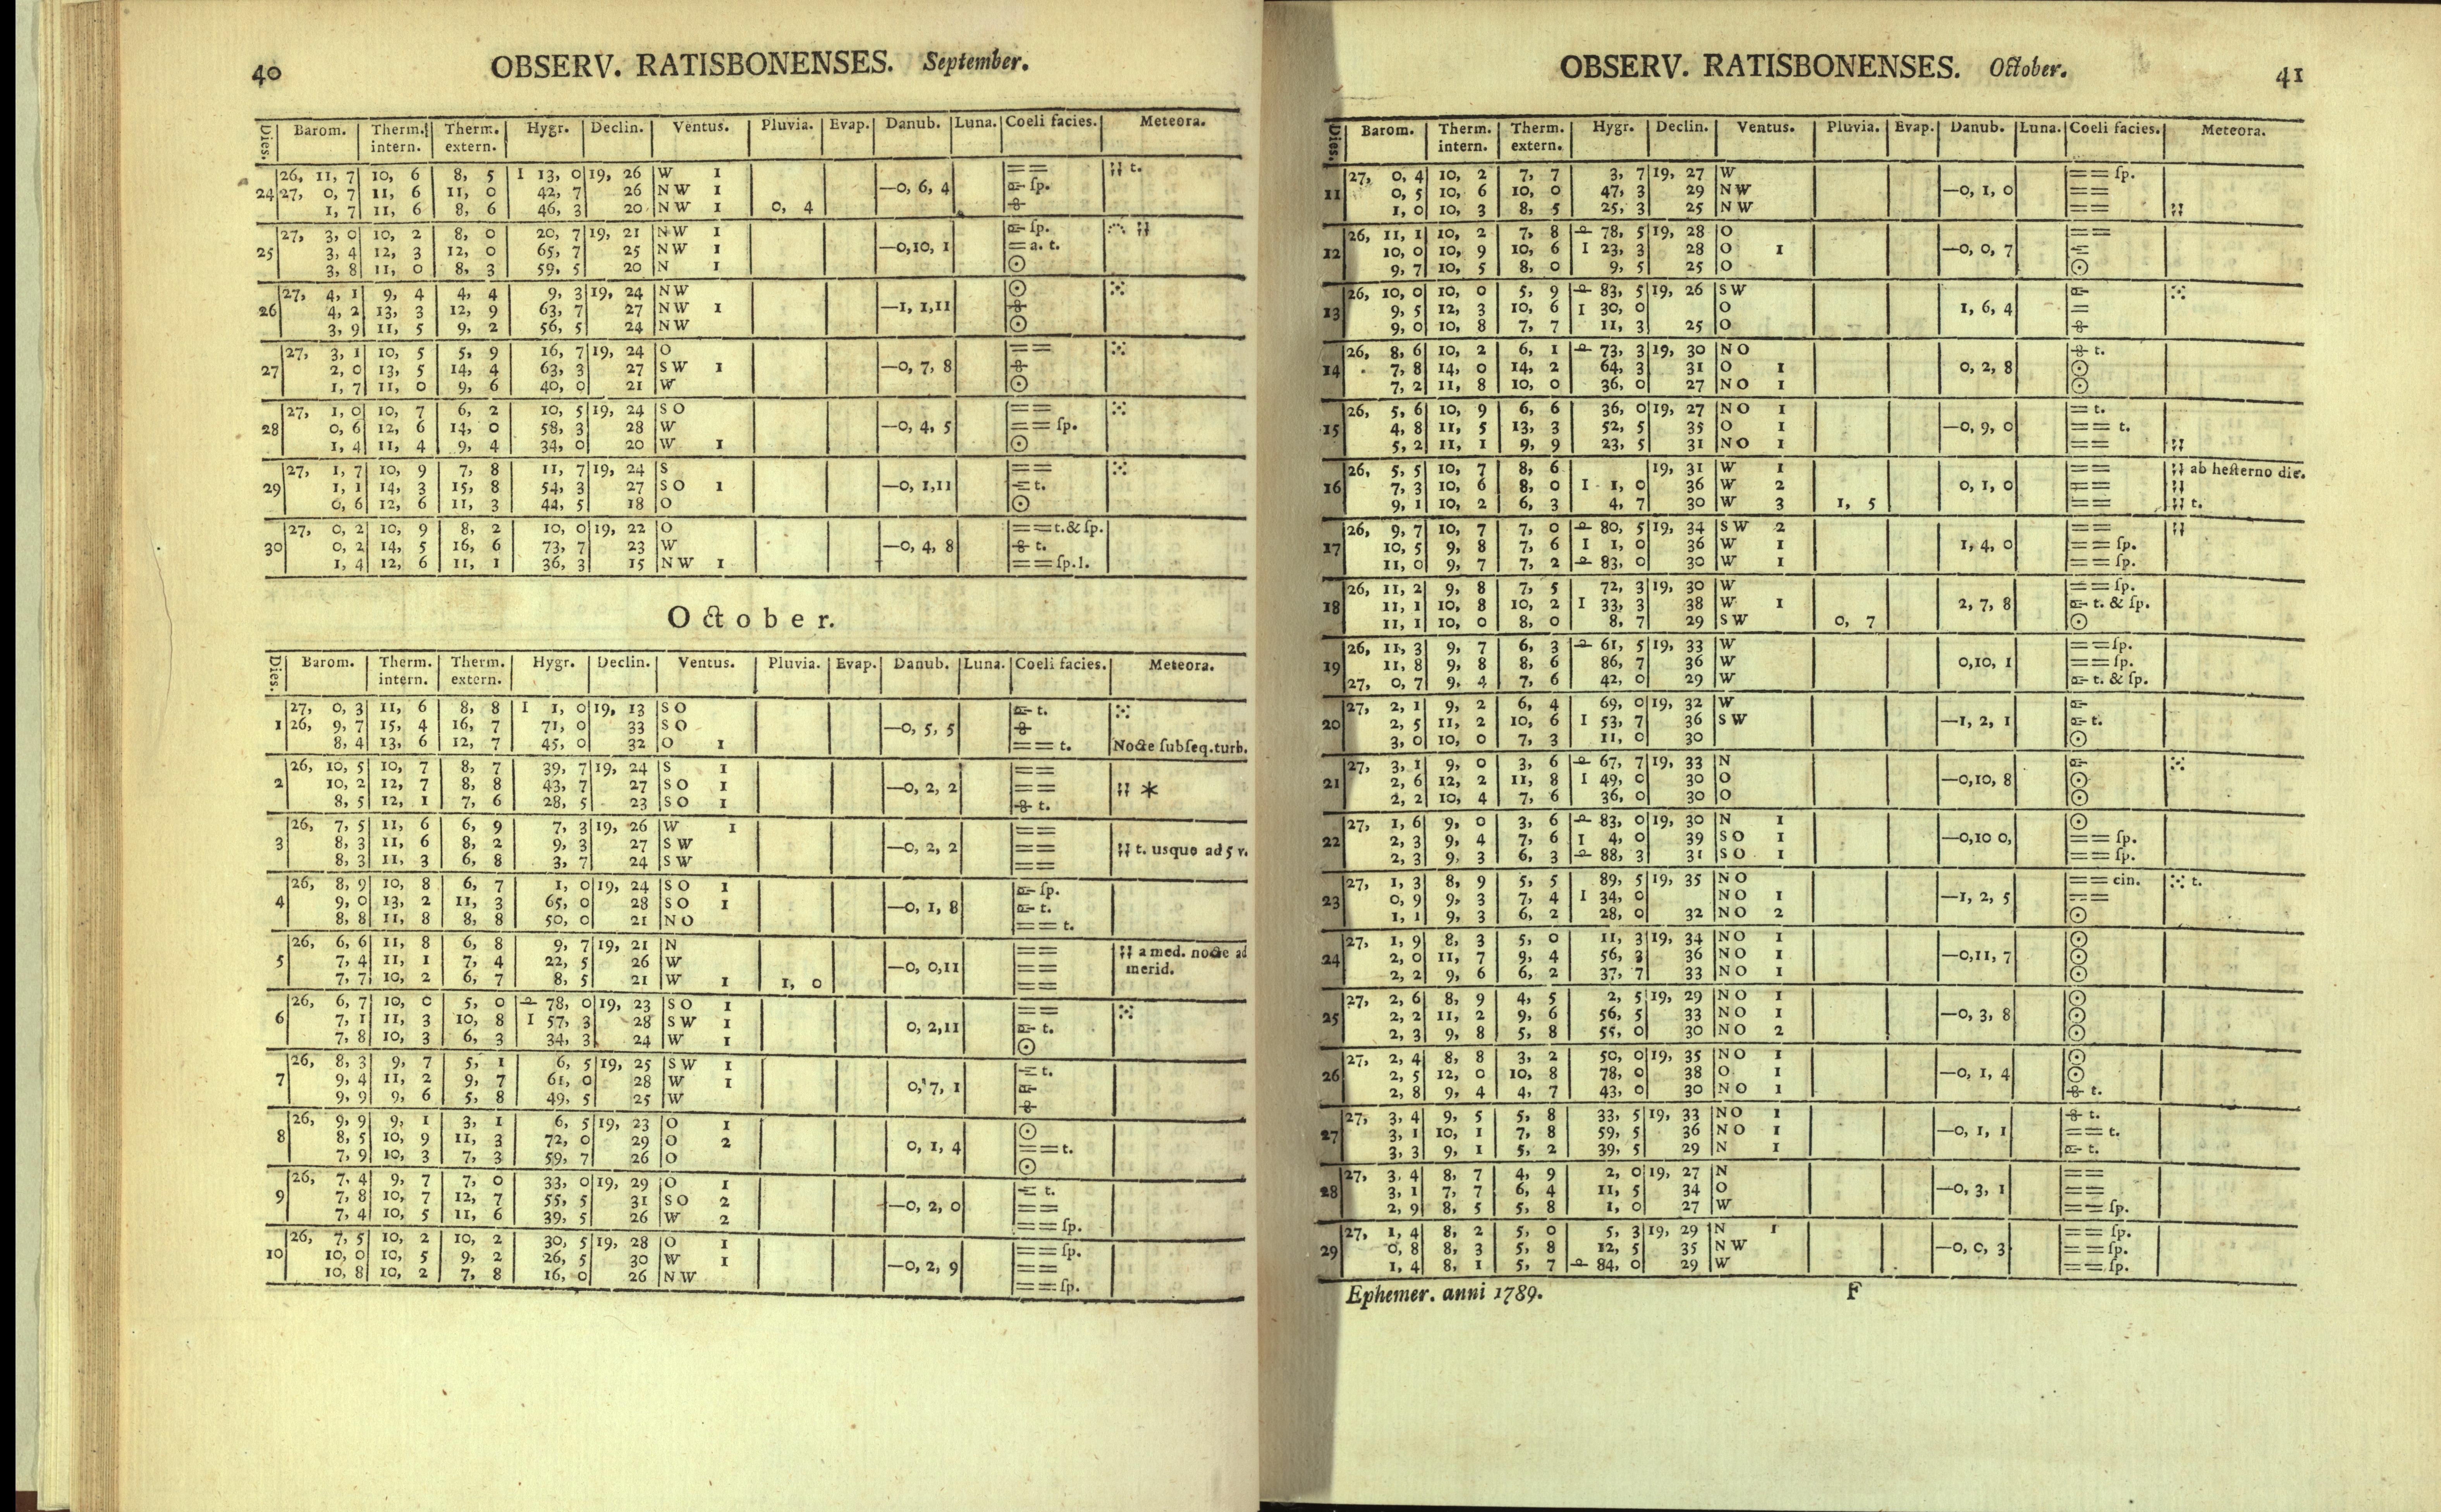 40
OBSERV. RATISBONENSES. September.
Dies. Barom. Therm. intern. Therm. extern. Hygr. Declin. Ventus. Pluvia. Evap. Danub. Luna. Coeli facies. Meteora.
26, 11, 7 10, 6 8, 5 I 13, 0 19, 26 W 1 == ⁏⁏ t.
24 27, 0, 7 11, 6 11, 0 42, 7 26 NW 1 —0, 6, 4 ſp.
1, 7 11, 6 8, 6 46, 3 20 NW 1 0, 4
27, 3, 0 10, 2 8, 0 20, 7 19, 21 NW 1 ſp.
25 3, 4 12, 3 12, 0 65, 7 25 NW 1 —0,10, 1 = a. t.
3, 8 11, 0 8, 3 59, 5 20 N 1 ☉
27, 4, 1 9, 4 4, 4 9, 3 19, 24 NW ☉
26 4, 2 13, 3 12, 9 63, 7 27 NW 1 —1, 1,11
3, 9 11, 5 9, 2 56, 5 24 NW ☉
27, 3, 1 10, 5 5, 9 16, 7 19, 24 O ==
27 2, 0 13, 5 14, 4 63, 3 27 SW 1 —0, 7, 8
1, 7 11, 0 9, 6 40, 0 21 W ☉
27, 1, 0 10, 7 6, 2 10, 5 19, 24 SO ==
28 0, 6 12, 6 14, 0 58, 3 28 W —0, 4, 5 == ſp.
1, 4 11, 4 9, 4 34, 0 20 W 1 ☉
27, 1, 7 10, 9 7, 8 11, 7 19, 24 S ==
29 1, 1 14, 3 15, 8 54, 3 27 SO 1 —0, 1,11 t.
0, 6 12, 6 11, 3 44, 5 18 O ☉
27, 0, 2 10, 9 8, 2 10, 0 19, 22 O == t. & ſp.
30 0, 2 14, 5 16, 6 73, 7 23 W —0, 4, 8 t.
1, 4 12, 6 11, 1 36, 3 15 NW 1 == ſp. l.
October.
Dies. Barom. Therm. intern. Therm. extern. Hygr. Declin. Ventus. Pluvia. Evap. Danub. Luna. Coeli facies. Meteora.
27, 0, 3 11, 6 8, 8 I 1, 0 19, 13 SO t.
1 26, 9, 7 15, 4 16, 7 71, 0 33 SO —0, 5, 5
8, 4 13, 6 12, 7 45, 0 32 O 1 == t. Nocte ſubſeq. turb.
26, 10, 5 10, 7 8, 7 39, 7 19, 24 S 1 ==
2 10, 2 12, 7 8, 8 43, 7 27 SO 1 —0, 2, 2 == ⁏⁏ *
8, 5 12, 1 7, 6 28, 5 23 SO 1 t.
26, 7, 5 11, 6 6, 9 7, 3 19, 26 W 1 ==
3 8, 3 11, 6 8, 2 9, 3 27 SW —0, 2, 2 == ⁏⁏ t. usque ad 5 v.
8, 3 11, 3 6, 8 3, 7 24 SW ==
26, 8, 9 10, 8 6, 7 1, 0 19, 24 SO 1 ſp.
4 9, 0 13, 2 11, 3 65, 0 28 SO 1 —0, 1, 8 t.
8, 8 11, 8 8, 8 50, 0 21 NO == t.
26, 6, 6 11, 8 6, 8 9, 7 19, 21 N == ⁏⁏ a med. nocte ad
5 7, 4 11, 1 7, 4 22, 5 26 W —0, 0,11 == merid.
7, 7 10, 2 6, 7 8, 5 21 W 1 1, 0 ==
26, 6, 7 10, 0 5, 0 78, 0 19, 23 SO 1 ==
6 7, 1 11, 3 10, 8 I 57, 3 28 SW 1 0, 2,11 t.
7, 8 10, 3 6, 3 34, 3 24 W 1 ☉
26, 8, 3 9, 7 5, 1 6, 5 19, 25 SW 1 t.
7 9, 4 11, 2 9, 7 61, 0 28 W 1 0, 7, 1
9, 9 9, 6 5, 8 49, 5 25 W
26, 9, 9 9, 1 3, 1 6, 5 19, 23 O 1 ☉
8 8, 5 10, 9 11, 3 72, 0 29 O 2 0, 1, 4 == t.
7, 9 10, 3 7, 3 59, 7 26 O ☉
26, 7, 4 9, 7 7, 0 33, 0 19, 29 O 1 t.
9 7, 8 10, 7 12, 7 55, 5 31 SO 2 —0, 2, 0 ==
7, 4 10, 5 11, 6 39, 5 26 W 2 == ſp.
26, 7, 5 10, 2 10, 2 30, 5 19, 28 O 1 == ſp.
10 10, 0 10, 5 9, 2 26, 5 30 W 1 —0, 2, 9 ==
10, 8 10, 2 7, 8 16, 0 26 NW == ſp.
OBSERV. RATISBONENSES. October.
41
Dies. Barom. Therm. intern. Therm. extern. Hygr. Declin. Ventus. Pluvia. Evap. Danub. Luna. Coeli facies. Meteora.
27, 0, 4 10, 2 7, 7 3, 7 19, 27 W == ſp.
11 0, 5 10, 6 10, 0 47, 3 29 NW —0, 1, 0 ==
1, 0 10, 3 8, 5 25, 3 25 NW == ⁏⁏
26, 11, 1 10, 2 7, 8 78, 5 19, 28 O ==
12 10, 0 10, 9 10, 6 I 23, 3 28 O 1 —0, 0, 7
9, 7 10, 5 8, 0 9, 5 25 O ☉
26, 10, 0 10, 0 5, 9 83, 5 19, 26 SW
13 9, 5 12, 3 10, 6 I 30, 0 O 1, 6, 4 =
9, 0 10, 8 7, 7 11, 3 25 O
26, 8, 6 10, 2 6, 1 73, 3 19, 30 NO t.
14 7, 8 14, 0 14, 2 64, 3 31 O 1 0, 2, 8 ☉
7, 2 11, 8 10, 0 36, 0 27 NO 1 ☉
26, 5, 6 10, 9 6, 6 36, 0 19, 27 NO 1 = t.
15 4, 8 11, 5 13, 3 52, 5 35 O 1 —0, 9, 0 == t.
5, 2 11, 1 9, 9 23, 5 31 NO 1 == ⁏⁏
26, 5, 5 10, 7 8, 6 19, 31 W 1 == ⁏⁏ ab heſterno die.
16 7, 3 10, 6 8, 0 I 1, 0 36 W 2 0, 1, 0 == ⁏⁏
9, 1 10, 2 6, 3 4, 7 30 W 3 1, 5 == ⁏⁏ t.
26, 9, 7 10, 7 7, 0 80, 5 19, 34 SW 2 == ⁏⁏
17 10, 5 9, 8 7, 6 I 1, 0 36 W 1 1, 4, 0 == ſp.
11, 0 9, 7 7, 2 83, 0 30 W 1 == ſp.
26, 11, 2 9, 8 7, 5 72, 3 19, 30 W == ſp.
18 11, 1 10, 8 10, 2 I 33, 3 38 W 1 2, 7, 8 t. & ſp.
11, 1 10, 0 8, 0 8, 7 29 SW 0, 7 ☉
26, 11, 3 9, 7 6, 3 61, 5 19, 33 W == ſp.
19 11, 8 9, 8 8, 6 86, 7 36 W 0,10, 1 == ſp.
27, 0, 7 9, 4 7, 6 42, 0 29 W t. & ſp.
27, 2, 1 9, 2 6, 4 69, 0 19, 32 W
20 2, 5 11, 2 10, 6 I 53, 7 36 SW —1, 2, 1 t.
3, 0 10, 0 7, 3 11, 0 30 ☉
27, 3, 1 9, 0 3, 6 67, 7 19, 33 N
21 2, 6 12, 2 11, 8 I 49, 0 30 O —0,10, 8 ☉
2, 2 10, 4 7, 6 36, 0 30 O ☉
27, 1, 6 9, 0 3, 6 83, 0 19, 30 N 1 ☉
22 2, 3 9, 4 7, 6 I 4, 0 39 SO 1 —0,10 0, == ſp.
2, 3 9, 3 6, 3 88, 3 31 SO 1 == ſp.
27, 1, 3 8, 9 5, 5 89, 5 19, 35 NO == cin. t.
23 0, 9 9, 3 7, 4 I 34, 0 NO 1 —1, 2, 5 ==
1, 1 9, 3 6, 2 28, 0 32 NO 2 ☉
27, 1, 9 8, 3 5, 0 11, 3 19, 34 NO 1 ☉
24 2, 0 11, 7 9, 4 56, 3 36 NO 1 —0,11, 7 ☉
2, 2 9, 6 6, 2 37, 7 33 NO 1 ☉
27, 2, 6 8, 9 4, 5 2, 5 19, 29 NO 1 ☉
25 2, 2 11, 2 9, 6 56, 5 33 NO 1 —0, 3, 8 ☉
2, 3 9, 8 5, 8 55, 0 30 NO 2 ☉
27, 2, 4 8, 8 3, 2 50, 0 19, 35 NO 1 ☉
26 2, 5 12, 0 10, 8 78, 0 38 O 1 —0, 1, 4 ☉
2, 8 9, 4 4, 7 43, 0 30 NO 1 t.
27, 3, 4 9, 5 5, 8 33, 5 19, 33 NO 1 t.
27 3, 1 10, 1 7, 8 59, 5 36 NO 1 —0, 1, 1 == t.
3, 3 9, 1 5, 2 39, 5 29 N 1 t.
27, 3, 4 8, 7 4, 9 2, 0 19, 27 N ==
28 3, 1 7, 7 6, 4 11, 5 34 O —0, 3, 1 ==
2, 9 8, 5 5, 8 1, 0 27 W == ſp.
27, 1, 4 8, 2 5, 0 5, 3 19, 29 N 1 == ſp.
29 0, 8 8, 3 5, 8 12, 5 35 NW —0, 0, 3 == ſp.
1, 4 8, 1 5, 7 84, 0 29 W == ſp.
Ephemer. anni 1789. F